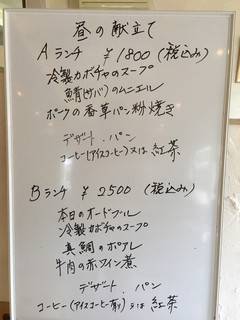 昼の献立て
Aランチ ¥1800(税込み)
冷製カボチャのスープ
鯖(サバ)のムニエル
ポークの香草パン粉焼き
デザート.パン
コーヒー(アイスコーヒー)又は紅茶
Bランチ ¥2500 (税込み)
本日のオードブル
冷製カボチャのスープ
真鯛のポアレ
牛肉の赤ワイン煮
デザート.パン
コーヒー(アイスコーヒー有り)又は紅茶